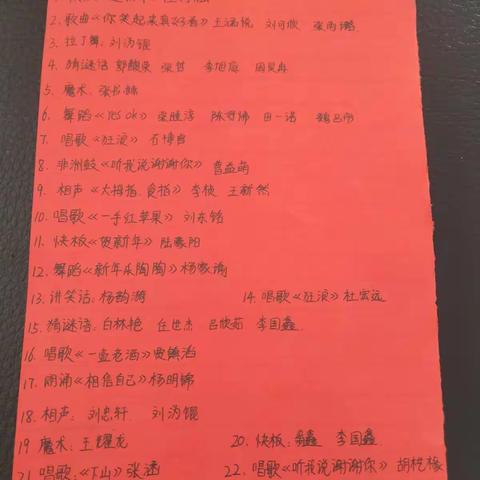 2. 歌曲《你笑起来真好看》王涵悦 刘可欣 张雨璐
3. 拉丁舞: 刘沩锟
4. 猜谜语 郭馥荣 张哲 李旭庭 周昊冉
5. 魔术: 张书
6. 舞蹈《yes ok》 陈 田一诺
7. 唱歌《狂浪》石博自
8. 非洲鼓《听我说谢谢你》曹益萌
9. 相声《大拇指食指》李桢 王新然
10. 唱歌《一手红苹果》刘东铭
11. 快板《贺新年》陆豪阳
12. 舞蹈《新年乐陶陶》杨家瑜
13. 讲笑话: 杨韵漪 14. 唱歌《狂浪》杜宏远
15. 猜谜语: 白林艳 任世杰 吕欣茹 李国鑫
16. 唱歌《一壶老酒》贾镇泊
17. 朗诵《相信自己》杨明锦
18. 相声: 刘忠轩 刘沩锟
19 魔术: 王耀龙 20. 快板: 鑫 李国鑫
21. 唱歌:《下山》张涵 22. 唱歌《听我说谢谢你》胡梽椽